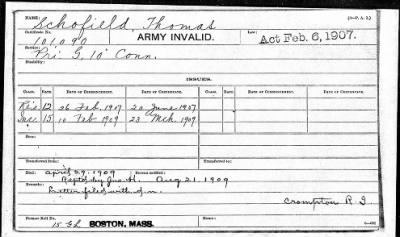 NAME: Schofield, Thomas (3-P. A. 2.)
Certificate No. 101,090 ARMY INVALID. Law: Act Feb. 6, 1907.
Service: Pri G. 10" Conn.
Disability:
ISSUES.
CLASS. RATE. DATE OF COMMENCEMENT. DATE OF CERTIFICATE. CLASS. RATE. DATE OF COMMENCEMENT. DATE OF CERTIFICATE.
12 26 Feb. 1907 20 June 1907
Inc. 15 10 Feb 1909 23 Mch. 1909
Transferred from:
Died: April 29, 1909 Bureau notified:
Reptd by Jno. H. Aug 21, 1909
Remarks: letter filed with
Crompton R I
Former Roll No. 15 BOSTON, MASS.